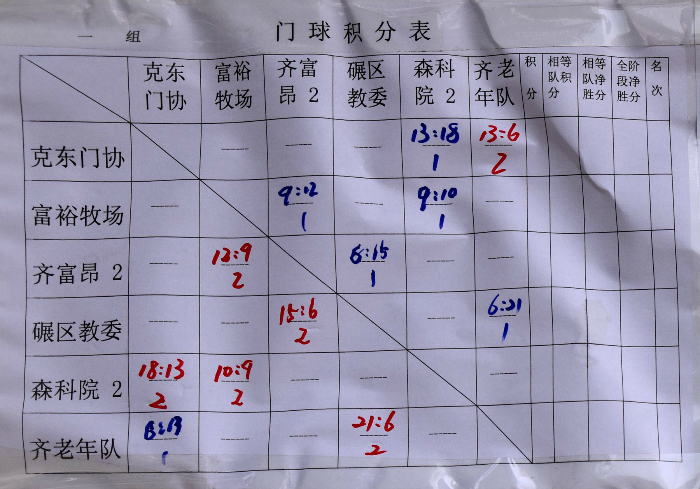 一 组 门球积分表
克东门协 富裕牧场 齐富昂 2 碾区教委 森科院 2 齐老年队 积分 相等队积分 相等队净胜分 全阶段净胜分 名次
克东门协 13:18 13:6
1 2
富裕牧场 9:12 9:10
1 1
齐富昂 2 12:9 6:15
2 1
碾区教委 15:6 6:21
2 1
森科院 2 18:13 10:9
2 2
齐老年队 6:13 21:6
1 2